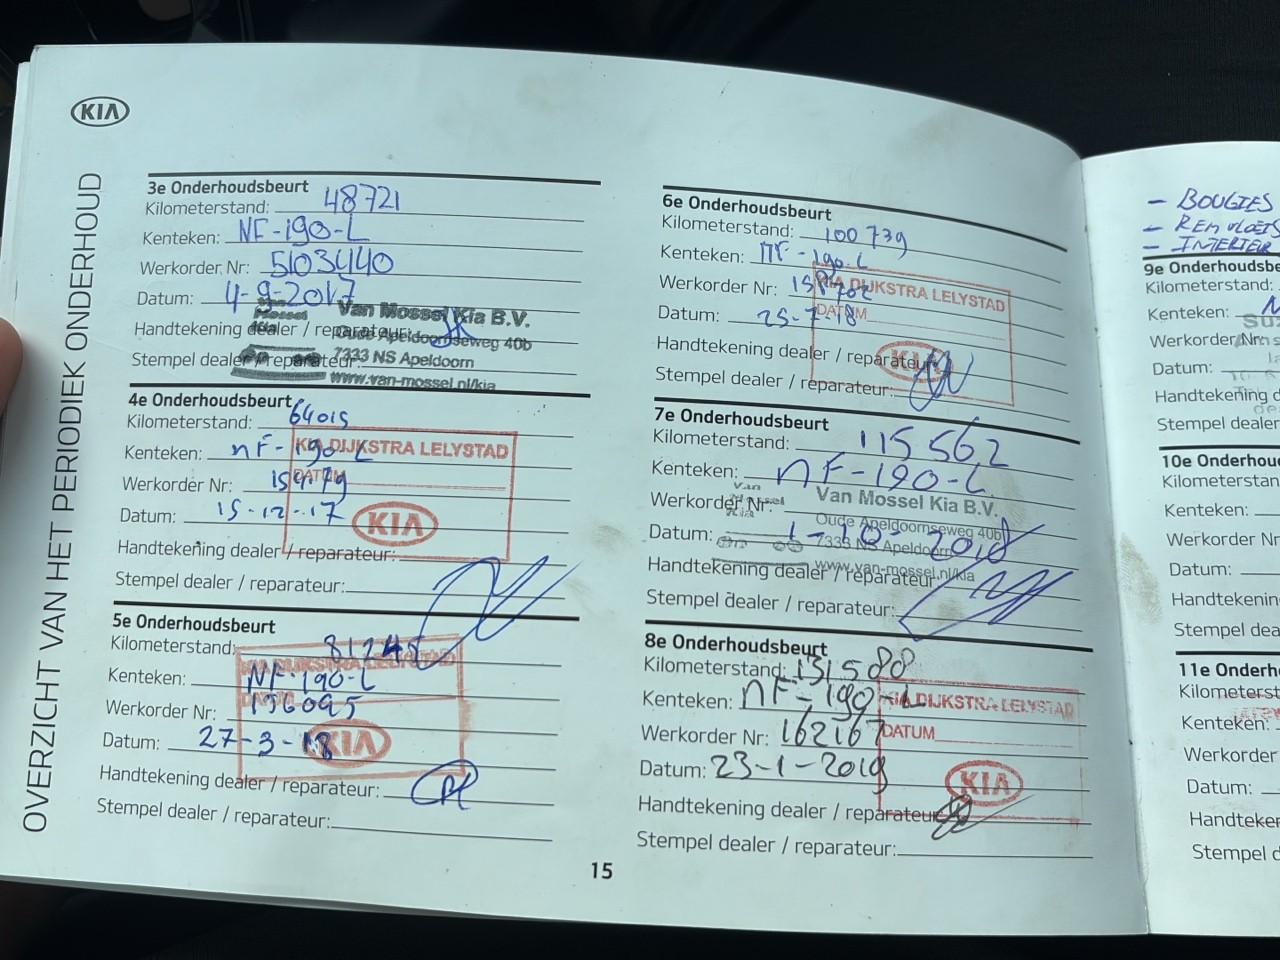 KIA
OVERZICHT VAN HET PERIODIEK ONDERHOUD
3e Onderhoudsbeurt
Kilometerstand: 48721
Kenteken: NF-190-L
Werkorder Nr: 5103440
Datum: 4-9-2017
Handtekening dealer / reparateur:
Stempel dealer / reparateur:
Van Mossel Kia
Van Mossel Kia B.V.
Oude Apeldoornseweg 40b
7333 NS Apeldoorn
www.van-mossel.nl/kia
4e Onderhoudsbeurt
Kilometerstand: 64015
Kenteken: nF-190-L
Werkorder Nr:
Datum: 15-12-17
Handtekening dealer / reparateur:
Stempel dealer / reparateur:
KIA DIJKSTRA LELYSTAD
DATUM
KIA
5e Onderhoudsbeurt
Kilometerstand: 81245
Kenteken: NF-190-L
Werkorder Nr: 156095
Datum: 27-3-18
Handtekening dealer / reparateur:
Stempel dealer / reparateur:
KIA DIJKSTRA LELYSTAD
DATUM
KIA
6e Onderhoudsbeurt
Kilometerstand: 100739
Kenteken: NF-190-L
Werkorder Nr: 158702
Datum: 25-7-18
Handtekening dealer / reparateur:
Stempel dealer / reparateur:
KIA DIJKSTRA LELYSTAD
DATUM
KIA
7e Onderhoudsbeurt
Kilometerstand: 115562
Kenteken: nF-190-L
Werkorder Nr:
Datum: 1-10-2018
Handtekening dealer / reparateur:
Stempel dealer / reparateur:
Van Mossel Kia
Van Mossel Kia B.V.
Oude Apeldoornseweg 40b
7333 NS Apeldoorn
www.van-mossel.nl/kia
8e Onderhoudsbeurt
Kilometerstand: 131588
Kenteken: nF-190-L
Werkorder Nr: 162167
Datum: 23-1-2019
Handtekening dealer / reparateur:
Stempel dealer / reparateur:
KIA DIJKSTRA LELYSTAD
DATUM
KIA
15
- BOUGIES
- REMVLOEIS
- INTERIEUR
9e Onderhoudsbe
Kilometerstand:
Kenteken: N
Werkorder Nr:
Datum:
Handtekening d
Stempel dealer
10e Onderhou
Kilometerstan
Kenteken:
Werkorder Nr
Datum:
Handtekenin
Stempel dea
11e Onderh
Kilometerst
Kenteken:
Werkorder
Datum:
Handteker
Stempel d